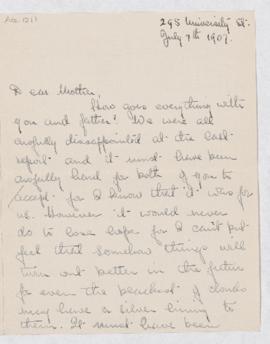 295 University St.
July 7th 1907.
Dear Mother,
How goes everything with
you and father? We were all
awfully disappointed at the last
report and it must have been
awfully hard for both of you to
accept for I know that it was for
us. However it would never
do to lose hope for I can't but
feel that somehow things will
turn out better in the future
for even the blackest of clouds
may have a silver lining to
them. It must have been